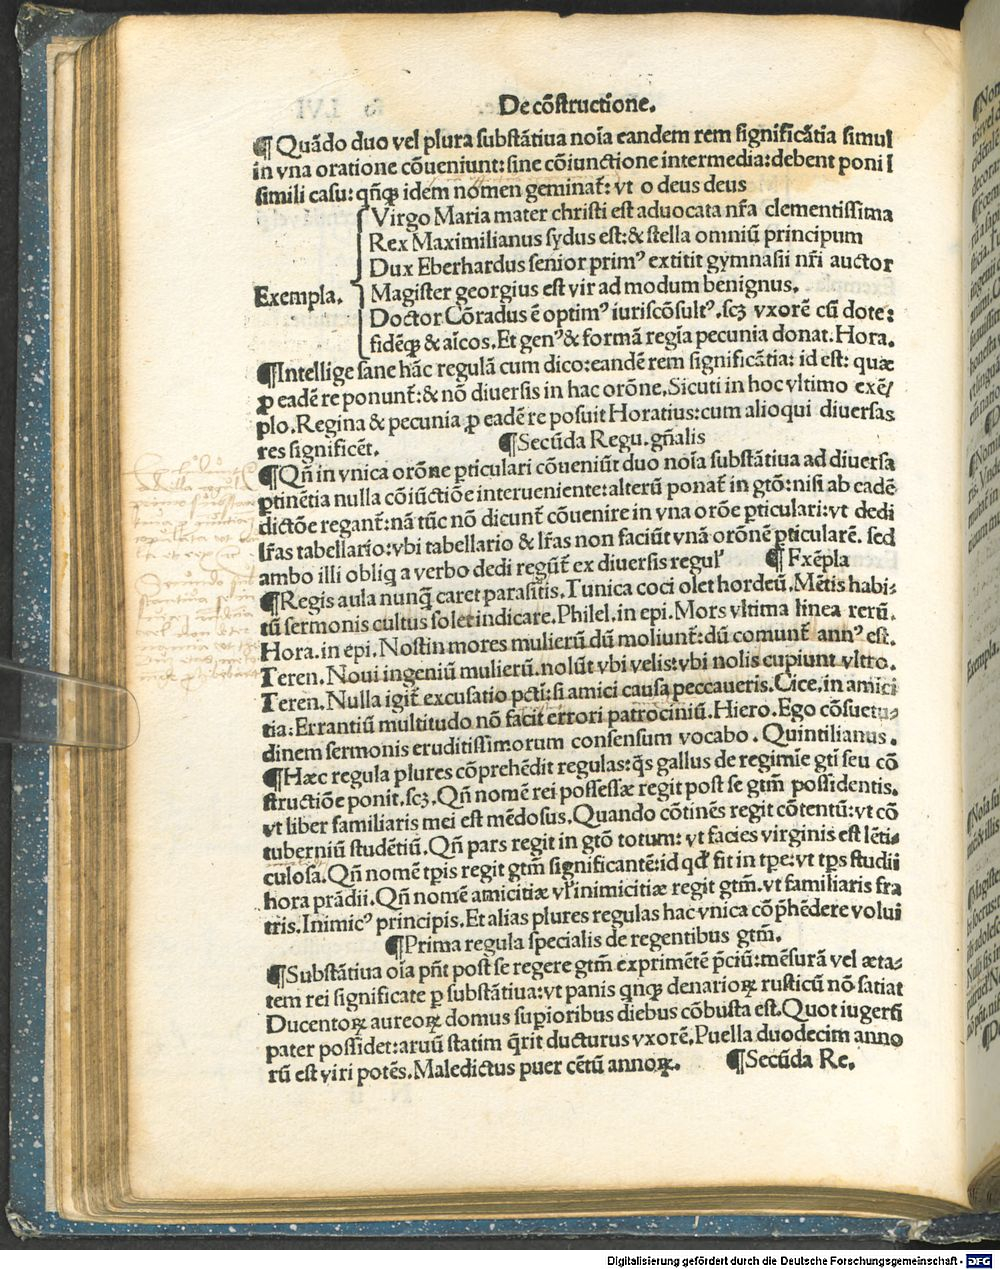 De cõstructione.
¶ Quãdo duo vel plura substãtiua noĩa eandem rem significãtia simul
in vna oratione cõueniunt: sine cõiunctione intermedia: debent poni ĩ
simili casu: qñqꝫ idem nomen geminat̃: vt o deus deus
Virgo Maria mater christi est aduocata nr̃a clementissima
Rex Maximilianus sydus est: & stella omniũ principum
Dux Eberhardus senior primꝰ extitit gymnasii nr̃i auctor
Exempla. Magister georgius est vir ad modum benignus.
Doctor Cõradus ẽ optimꝰ iuriscõsultꝰ. scꝫ vxorẽ cũ dote:
fidẽqꝫ & aĩcos. Et genꝰ & formã regĩa pecunia donat. Hora.
¶Intellige sane hãc regulã cum dico: eandẽ rem significãtia: id est: quæ
ꝓ eadẽ re ponunt̃: & nõ diuersis in hac orõne. Sicuti in hoc vltimo exẽ/
plo. Regina & pecunia ꝓ eadẽ re posuit Horatius: cum alioqui diuersas
res significẽt. ¶Secũda Regu. gñalis
¶Qñ in vnica orõne ꝑticulari cõueniũt duo noĩa substãtiua ad diuersa
ꝑtinẽtia nulla cõiũctiõe interueniente: alterũ ponat̃ in gtõ: nisi ab eadẽ
dictõe regant̃: nã tũc nõ dicunt̃ cõuenire in vna orõe ꝑticulari: vt dedi
lr̃as tabellario: vbi tabellario & lr̃as non faciũt vnã orõnẽ ꝑticularẽ. sed
ambo illi obliq̃ a verbo dedi regũt̃ ex diuersis regul' ¶ Exẽpla
¶Regis aula nunq̃ caret parasitis. Tunica coci olet hordeũ. Mẽtis habi-
tũ sermonis cultus solet indicare. Philel. in epi. Mors vltima linea rerũ.
Hora. in epi. Nostin mores mulierũ dũ moliunt̃: dũ comunt̃ annꝰ est.
Teren. Noui ingeniũ mulierũ. nolũt vbi velis: vbi nolis cupiunt vltro.
Teren. Nulla igit̃ excusatio pctĩ: si amici causa peccaueris. Cice. in amici
tia: Errantiũ multitudo nõ facit errori patrociniũ. Hiero. Ego cõsuetu-
dinem sermonis eruditissimorum consensum vocabo. Quintilianus.
¶Hæc regula plures cõprehẽdit regulas: q̃s gallus de regimĩe gtĩ seu cõ
structiõe ponit. scꝫ. Qñ nomẽ rei possessæ regit post se gtm̃ possidentis.
vt liber familiaris mei est mẽdosus. Quando cõtinẽs regit cõtentũ: vt cõ
tuberniũ studẽtiũ. Qñ pars regit in gtõ totum: vt facies virginis est lẽti-
culosa. Qñ nomẽ tp̃is regit gtm̃ significantẽ: id qd' fit in tp̃e: vt tp̃s studii
hora prãdii. Qñ nomẽ amicitiæ vl' inimicitiæ regit gtm̃. vt familiaris fra
tris. Inimicꝰ principis. Et alias plures regulas hac vnica cõp̃hẽdere volui
¶Prima regula specialis de regentibus gtm̃.
¶Substãtiua oĩa pñt post se regere gtm̃ exprimẽtẽ p̃ciũ: mẽsurã vel æta-
tem rei significate ꝑ substãtiua: vt panis qnqꝫ denarioꝝ rusticũ nõ satiat
Ducentoꝝ aureoꝝ domus supioribus diebus cõbusta est. Quot iugerũ
pater possidet: aruũ statim q̃rit ducturus vxorẽ. Puella duodecim anno
rũ est viri potẽs. Maledictus puer cẽtũ annoꝝ. ¶Secũda Re.
Digitalisierung gefördert durch die Deutsche Forschungsgemeinschaft - DFG